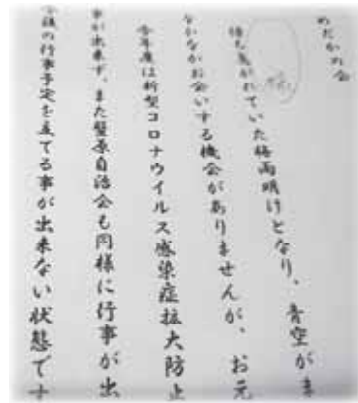 めだかの会
様
待ち焦がれていた梅雨明けとなり、青空がま
なかなかお会いする機会がありませんが、お元
今年度は新型コロナウイルス感染症拡大防止
事が出来ず、また蟹原自治会も同様に行事が出
今後の行事予定を立てる事が出来ない状態です